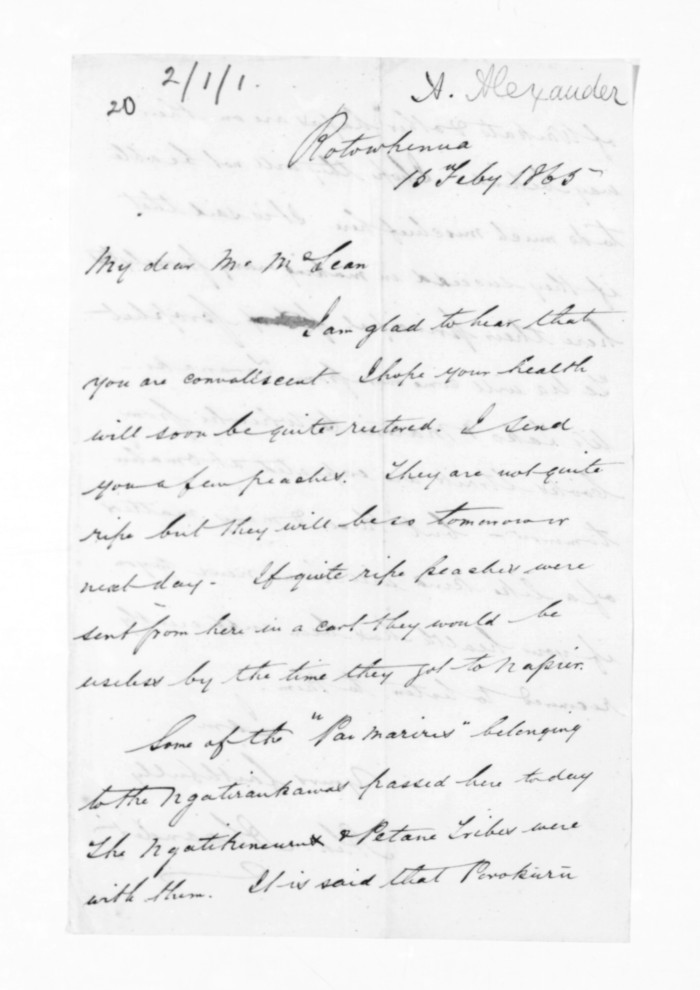 2/1/1.
20
A. Alexander
Rotowhenua
15" Feby 1865
My dear Mr McLean
I am glad to hear that
you are convaliscent I hope your health
will soon be quite restored. I send
you a few peaches. They are not quite
ripe but they will be so tomorrow or
next day. If quite ripe peaches were
sent from here in a cart they would be
useless by the time they got to Napier.
Some of the "Pai marires" belonging
to the Ngatiraukawas passed here today
The Ngatihineuru & Petane Tribes were
with them. It is said that